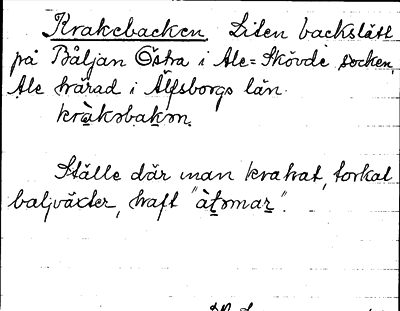 Krakebacken. Liten backslätt
på Båljan Östra i Ale-Skövde socken,
Ale härad i Älfsborgs län.
kràkəbakən.
Ställe där man krakat, torkat
baljväxter, haft "àt̠əmar̠".